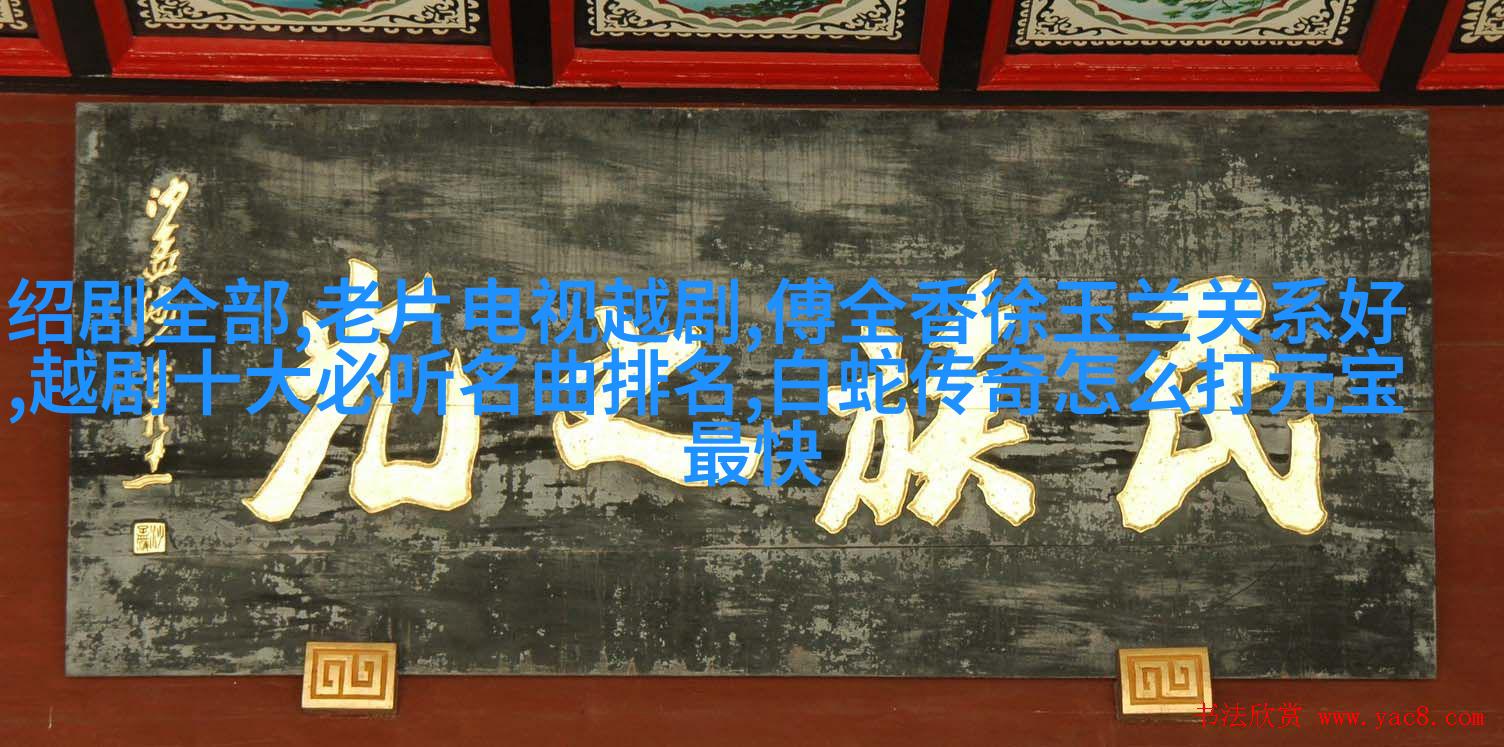 绍剧全部,老片电视越剧,傅全香徐玉兰关系好
,越剧十大必听名曲排名,白蛇传奇怎么打元宝
最快
民族之光
沙孟海
书法欣赏 www.yac8.com